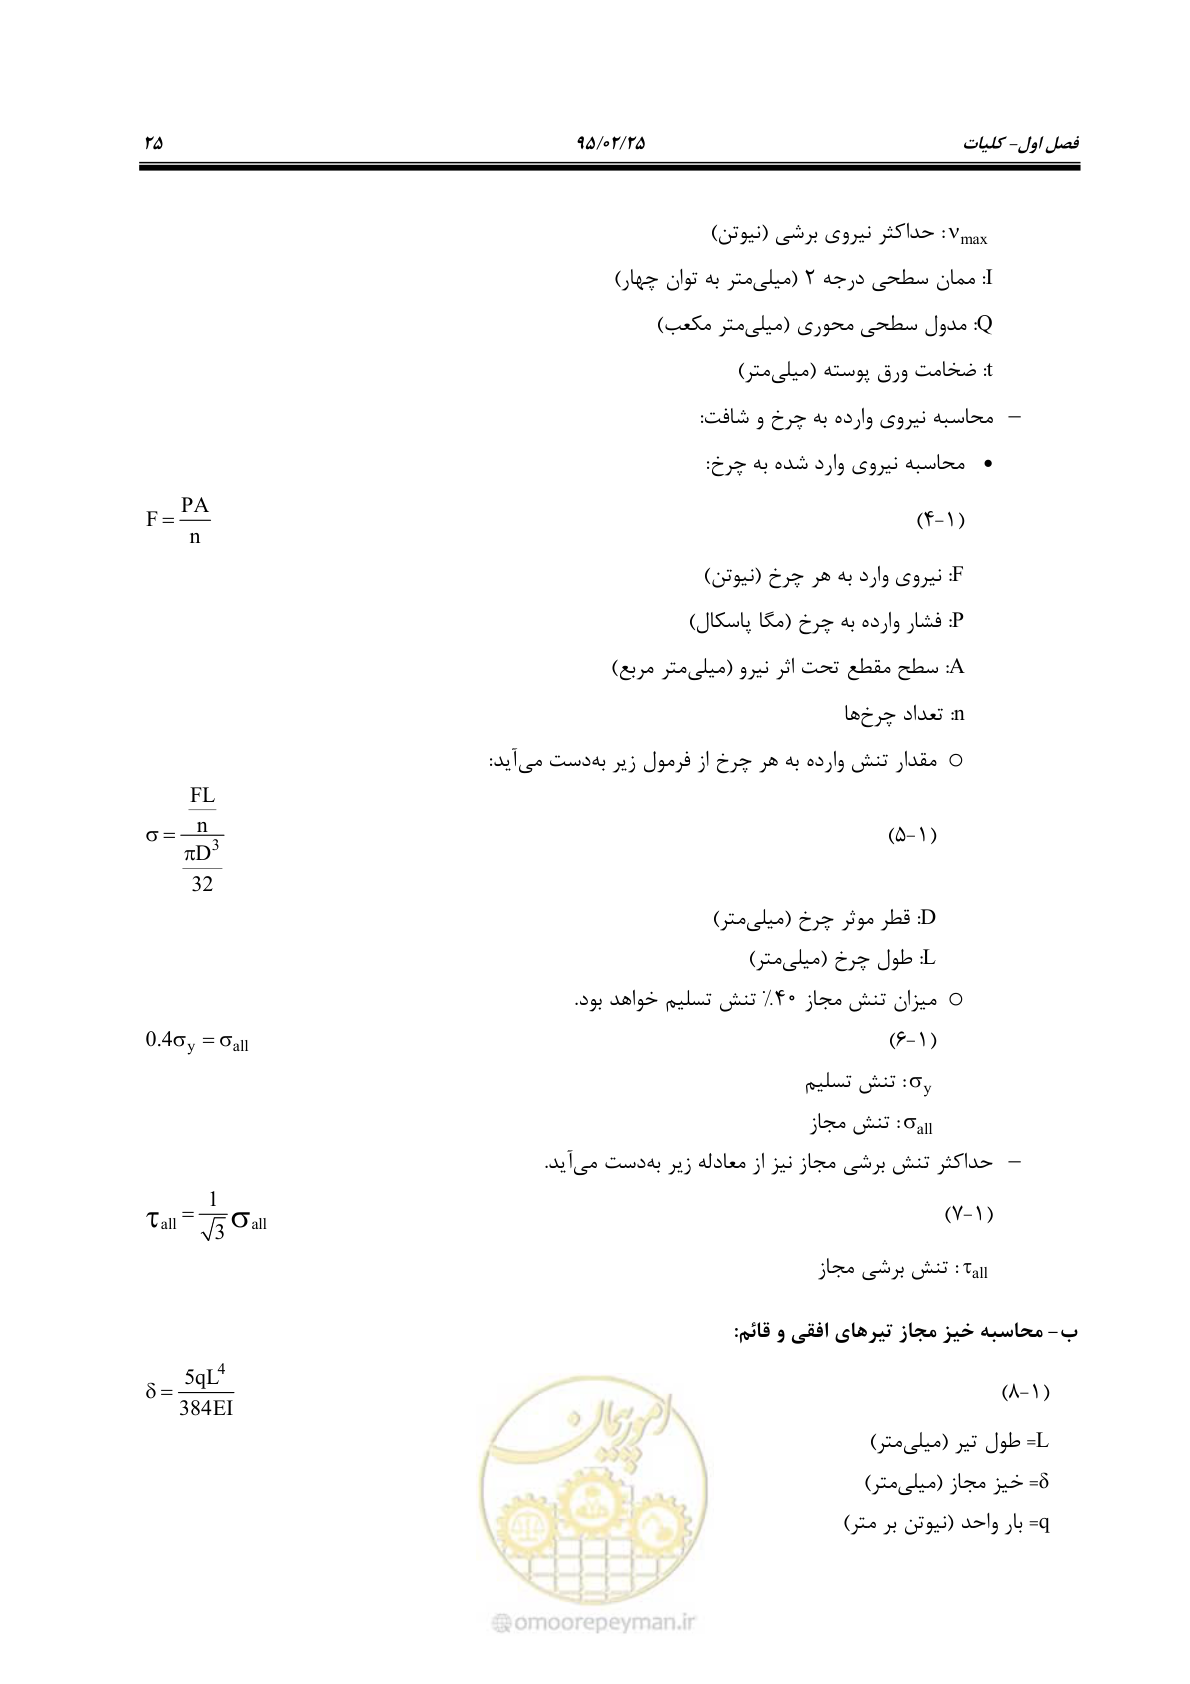 فصل اول- کلیات ۹۵/۰۲/۲۵ ۲۵
ν_max: حداکثر نیروی برشی (نیوتن)
I: ممان سطحی درجه ۲ (میلی‌متر به توان چهار)
Q: مدول سطحی محوری (میلی‌متر مکعب)
t: ضخامت ورق پوسته (میلی‌متر)
– محاسبه نیروی وارده به چرخ و شافت:
• محاسبه نیروی وارد شده به چرخ:
(۴-۱) F = PA/n
F: نیروی وارد به هر چرخ (نیوتن)
P: فشار وارده به چرخ (مگا پاسکال)
A: سطح مقطع تحت اثر نیرو (میلی‌متر مربع)
n: تعداد چرخ‌ها
○ مقدار تنش وارده به هر چرخ از فرمول زیر به‌دست می‌آید:
(۵-۱) σ = (FL/n)/(πD³/32)
D: قطر موثر چرخ (میلی‌متر)
L: طول چرخ (میلی‌متر)
○ میزان تنش مجاز ۴۰٪ تنش تسلیم خواهد بود.
(۶-۱) 0.4σ_y = σ_all
σ_y: تنش تسلیم
σ_all: تنش مجاز
– حداکثر تنش برشی مجاز نیز از معادله زیر به‌دست می‌آید.
(۷-۱) τ_all = 1/√3 σ_all
τ_all: تنش برشی مجاز
ب- محاسبه خیز مجاز تیرهای افقی و قائم:
(۸-۱) δ = 5qL⁴/384EI
L= طول تیر (میلی‌متر)
δ= خیز مجاز (میلی‌متر)
q= بار واحد (نیوتن بر متر)
امور پیمان
@omoorepeyman.ir